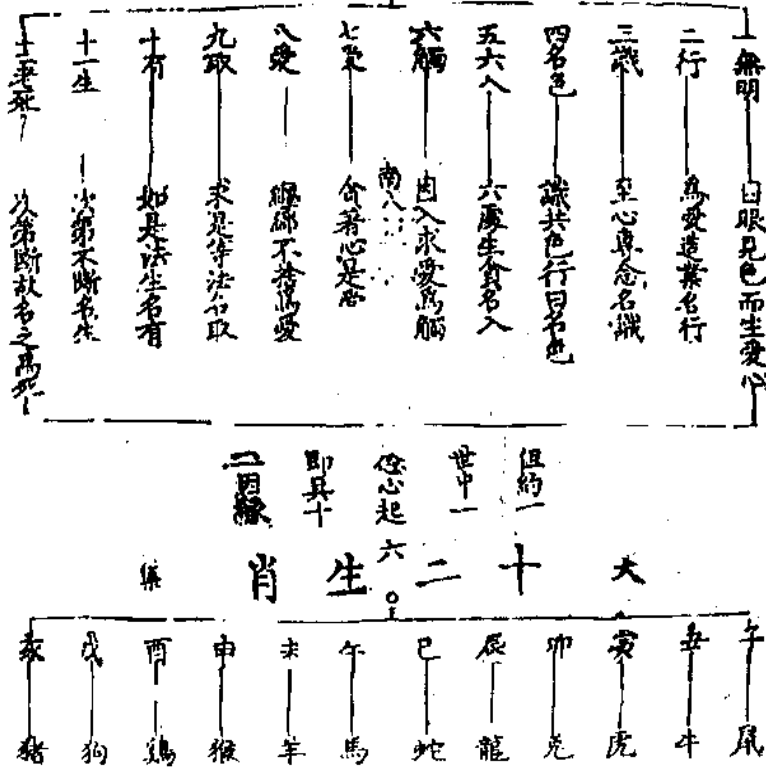 一無明 因眼見色而生愛心
二行 為愛造業名行
三識 至心專念名識
四名色 識共色行曰名色
五六入 六處生貪名入
六觸 因入求愛為觸
南八
七受 貪著心是受
八愛 纏綿不捨為愛
九取 求是等法名取
十有 如是法生名有
十一生 次第不斷名生
十二老死 次第斷故名之為死
但約一
世中一
念心起
即具十
二因緣
大 十二生肖 集
六
午 鼠
丑 牛
寅 虎
卯 兎
辰 龍
巳 蛇
午 馬
未 羊
申 猴
酉 鷄
戌 狗
亥 豬